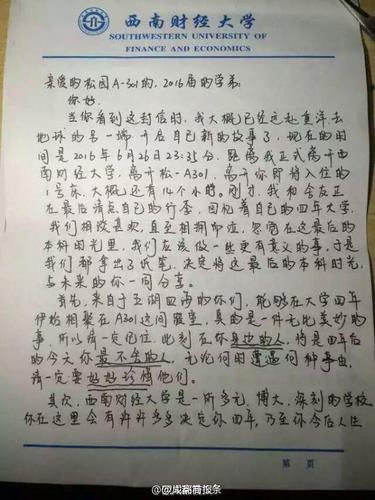 西南财经大学
SOUTHWESTERN UNIVERSITY OF
FINANCE AND ECONOMICS
亲爱的松园A-301的,2016届的学弟:
你好。
当你看到这封信时,我大概已经远赴重洋,去
地球的另一端开启自己新的故事了,现在的时
间是2016年6月26日23:35分,距离我正式离开西
南财经大学,离开松-A301,离开你即将入住的
1号床,大概还有14个小时。刚才,我和舍友正
在最后清点自己的行李,回忆着自己的四年大学,
我们相谈甚欢,直至相拥而泣,忽觉在这最后的
本科时光里,我们应该做一些更有意义的事,于是
我们都拿出了纸笔,决定将这最后的本科时光,
与未来的你一同分享。
首先,来自于五湖四海的你们,能够在大学四年
伊始相聚在A301这间寝室,真的是一件无比美妙的
事,所以请一定记住,此刻在你身边的人,将是四年后
的今天你最不舍的人,无论何时遭遇何种事由,
请一定要好好珍惜他们。
其次,西南财经大学是一所多元,博大,深刻的学校
你在这里会有许许多多决定你四年,乃至你今后人生
第 页